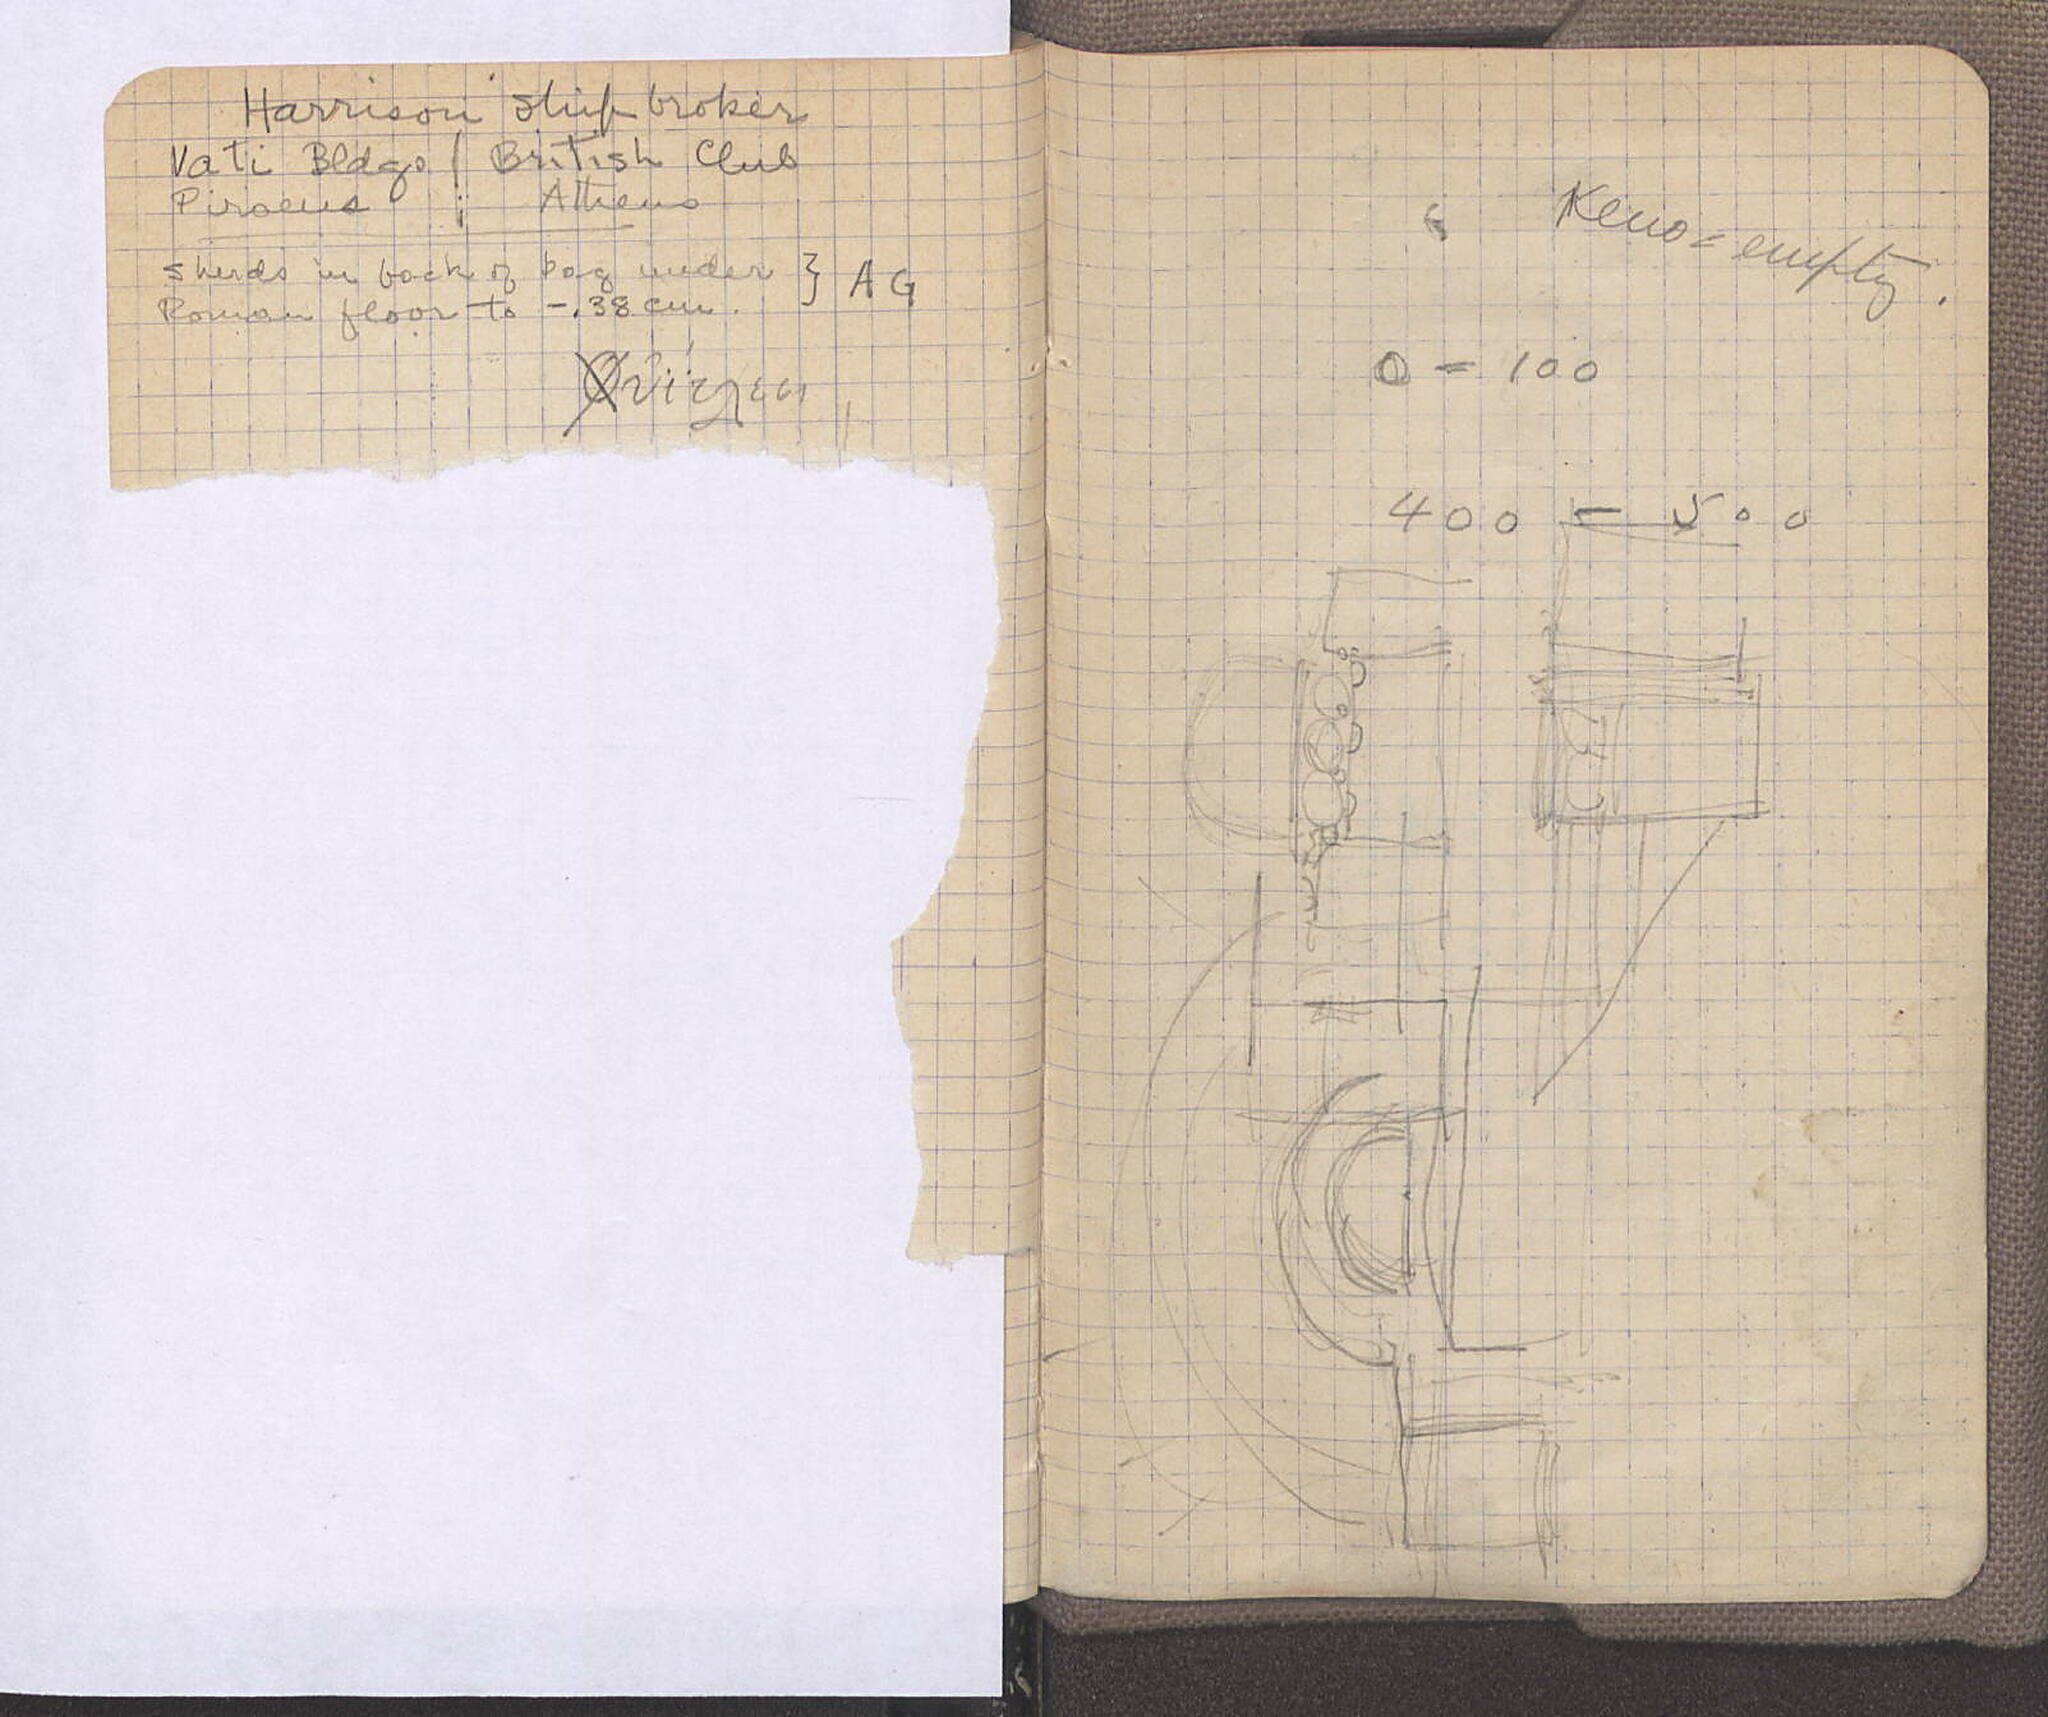 Harrison Ship broker
Vati Bldgs / British Club
Piraeus Athens
sherds in back of bag under } AG
Roman floor to -.38 cm.
Keno = empty.
0 - 100
400 - 500